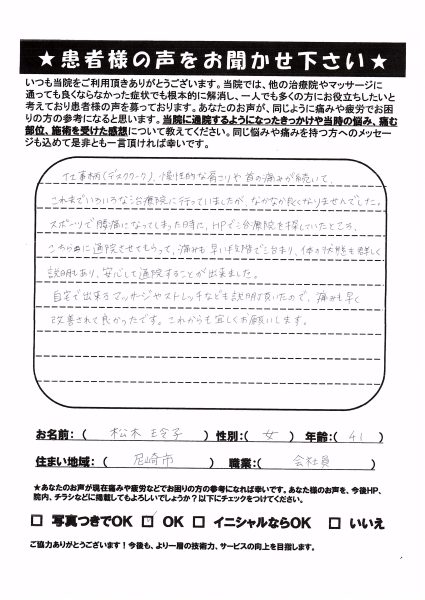 ★患者様の声をお聞かせ下さい★
いつも当院をご利用頂きありがとうございます。当院では、他の治療院やマッサージに
通っても良くならなかった症状でも根本的に解消し、一人でも多くの方にお役立ちしたいと
考えており患者様の声を募っております。あなたのお声が、同じように痛みや疲労でお困
りの方の参考になると思います。当院に通院するようになったきっかけや当時の悩み、痛む
部位、施術を受けた感想について教えてください。同じ悩みや痛みを持つ方へのメッセー
ジも込めて是非とも一言頂ければ幸いです。
仕事柄(デスクワーク)、慢性的な肩こりや首の痛みが続いて、
これまでいろいろな治療院に行っていましたが、なかなか良くなりませんでした。
スポーツで腰痛になってしまった時に、HPで治療院を探していたところ、
こちらに通院させてもらって、痛みも早い段階で治まり、体の状態も詳しく
説明もあり、安心して通院することが出来ました。
自宅で出来るマッサージやストレッチなども説明頂いたので、痛みも早く
改善されて良かったです。これからも宜しくお願いします。
お名前：( 松木 玲子 ) 性別：( 女 ) 年齢：( 41 )
住まい地域：( 尼崎市 ) 職業：( 会社員 )
★あなたのお声が現在痛みや疲労などでお困りの方の参考になれば幸いです。あなた様のお声を、今後HP、
院内、チラシなどに掲載してもよろしいでしょうか？以下にチェックをつけてください。
□ 写真つきでOK ☑ OK □ イニシャルならOK □ いいえ
ご協力ありがとうございます！今後も、より一層の技術力、サービスの向上を目指します。